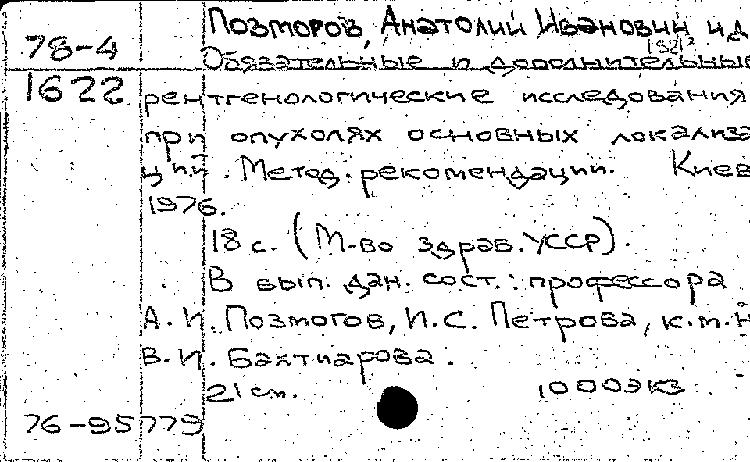 Позморов, Анатолий Иванович и д
78-4
Обязательные и дополнительные
1622 рентгенологические исследования
при опухолях основных локализа
ций. Метод. рекомендации. Киев
1976.
18 с. (М-во здрав. УССР).
В вып. дан. сост.: профессора
А. И. Позмогов, И.С. Петрова, к.м.н
В. И. Бахтиарова.
21 см. 1000экз
76-95779